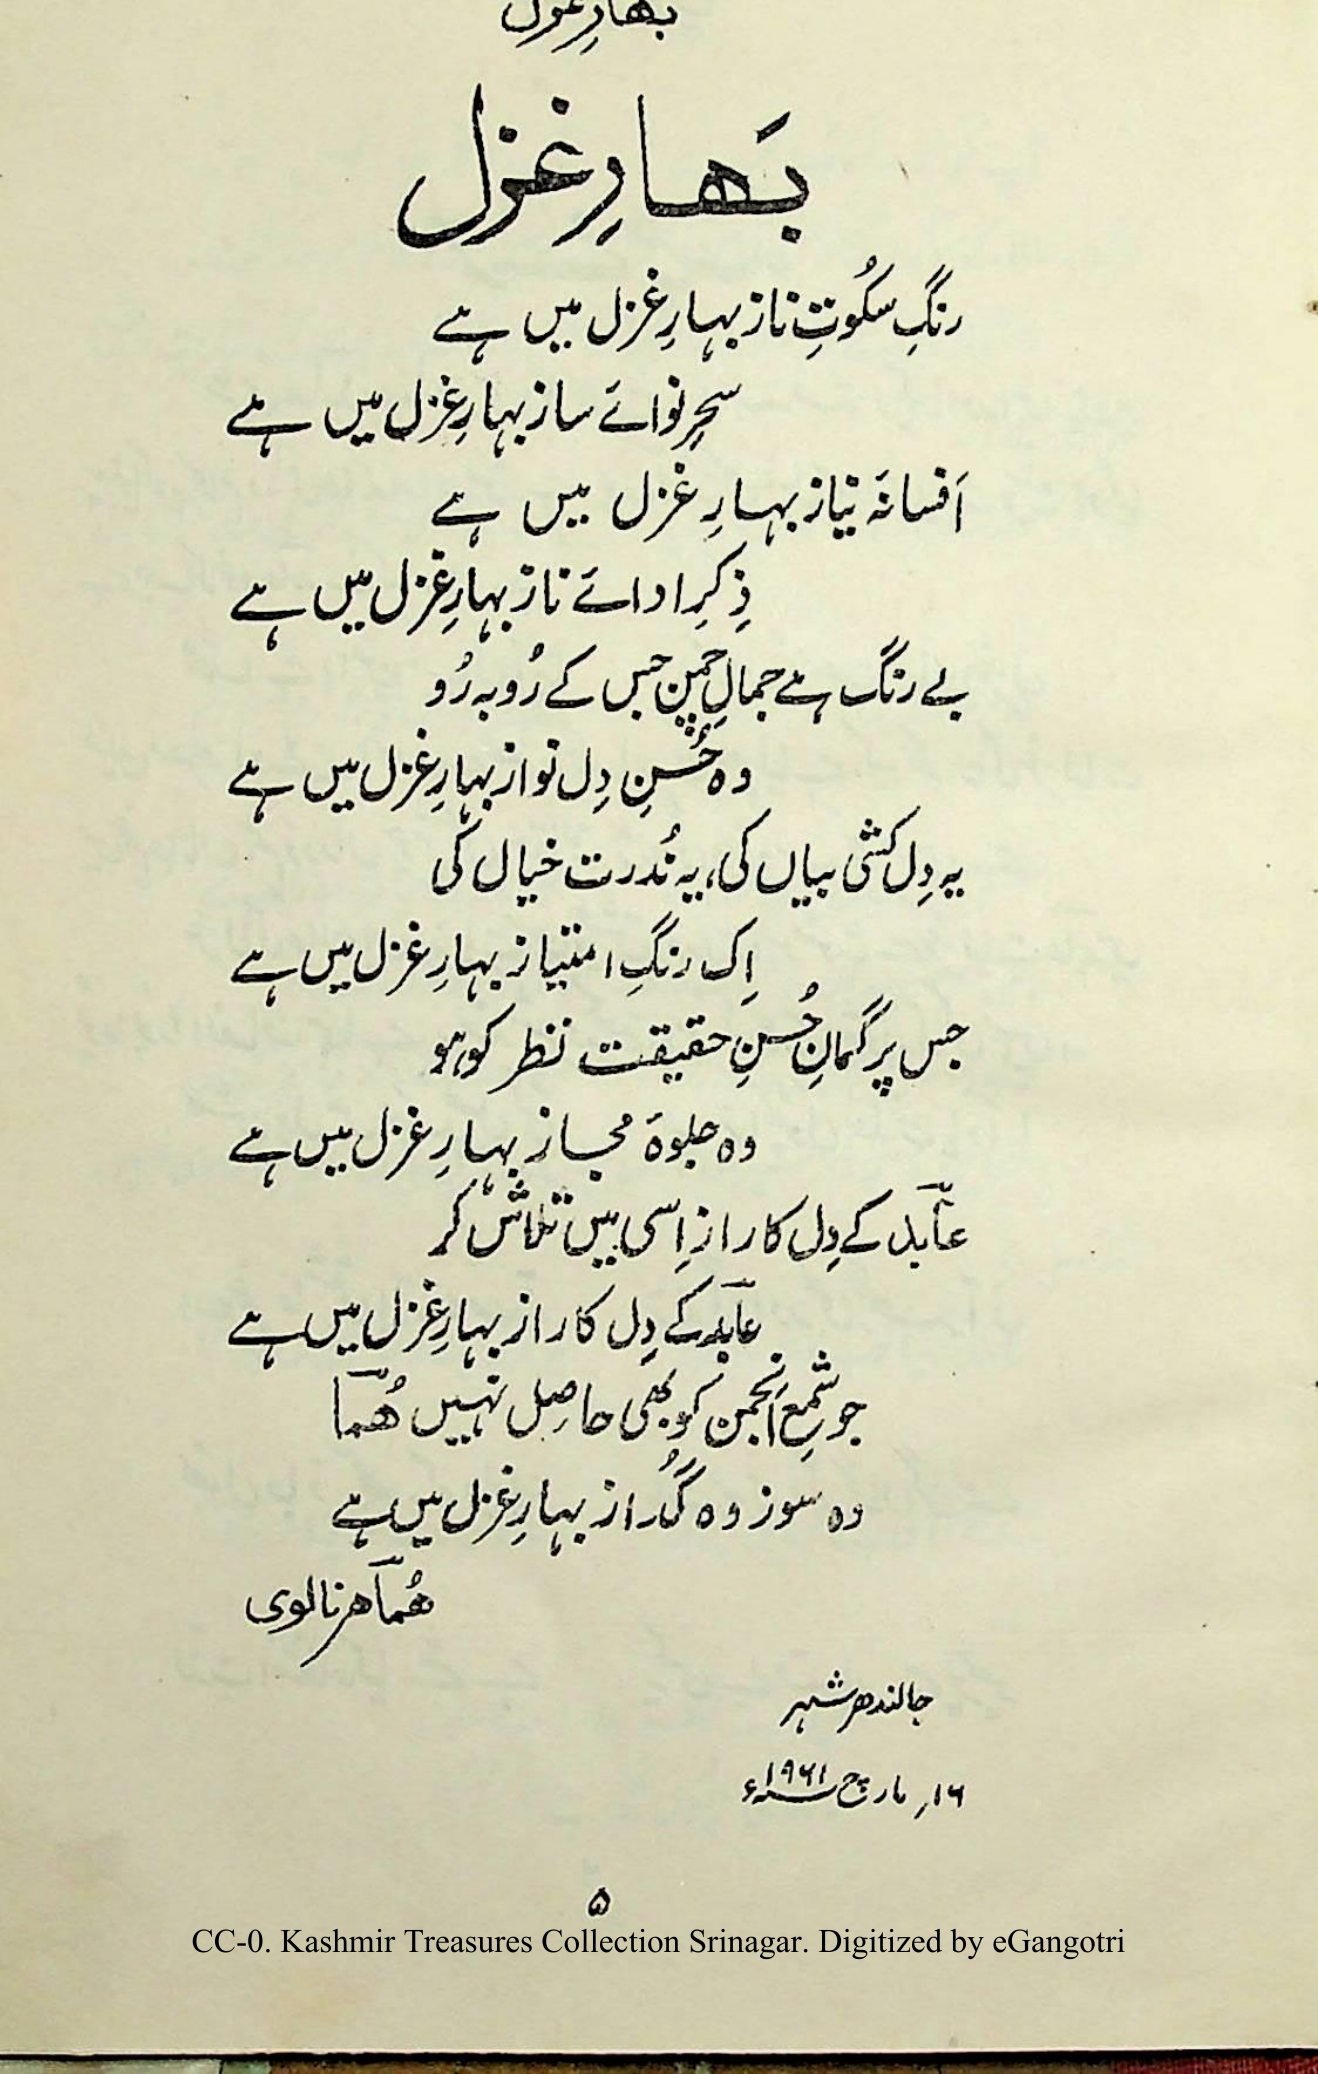 بھارِغزل
بَھارِغزل
رنگِ سکُوتِ ناز بہارِغزل میں ہے
سحرِ نوائے ساز بہارِغزل میں ہے
اَفسانۂ نیاز بہارِ غزل میں ہے
ذِکرِ ادائے ناز بہارِغزل میں ہے
بے رنگ ہے جمالِ چمن جس کے رُو بہ رُو
وہ حُسنِ دِل نواز بہارِغزل میں ہے
یہ دِل کشی بیاں کی، یہ نُدرت خیال کی
اِک رنگِ امتیاز بہارِ غزل میں ہے
جس پر گمانِ حُسنِ حقیقت نظر کو ہو
وہ جلوۂ مجاز بہارِ غزل میں ہے
عابد کے دِل کا راز اِسی میں تلاش کر
عابد کے دِل کا راز بہارِغزل میں ہے
جو شمعِ اَنجمن کو بھی حاصِل نہیں ھُما
وہ سوز وہ گُداز بہارِغزل میں ہے
ھُما ھرنالوی
جالندھر شہر
۱۶؍ مارچ ۱۹۶۱ء
۵
CC-0. Kashmir Treasures Collection Srinagar. Digitized by eGangotri